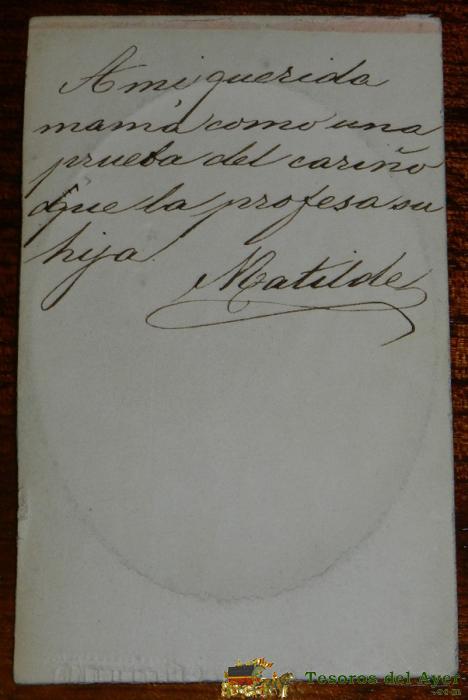 A mi querida
mamá como una
prueba del cariño
que la profesa su
hija
Matilde
Tesoros del Ayer